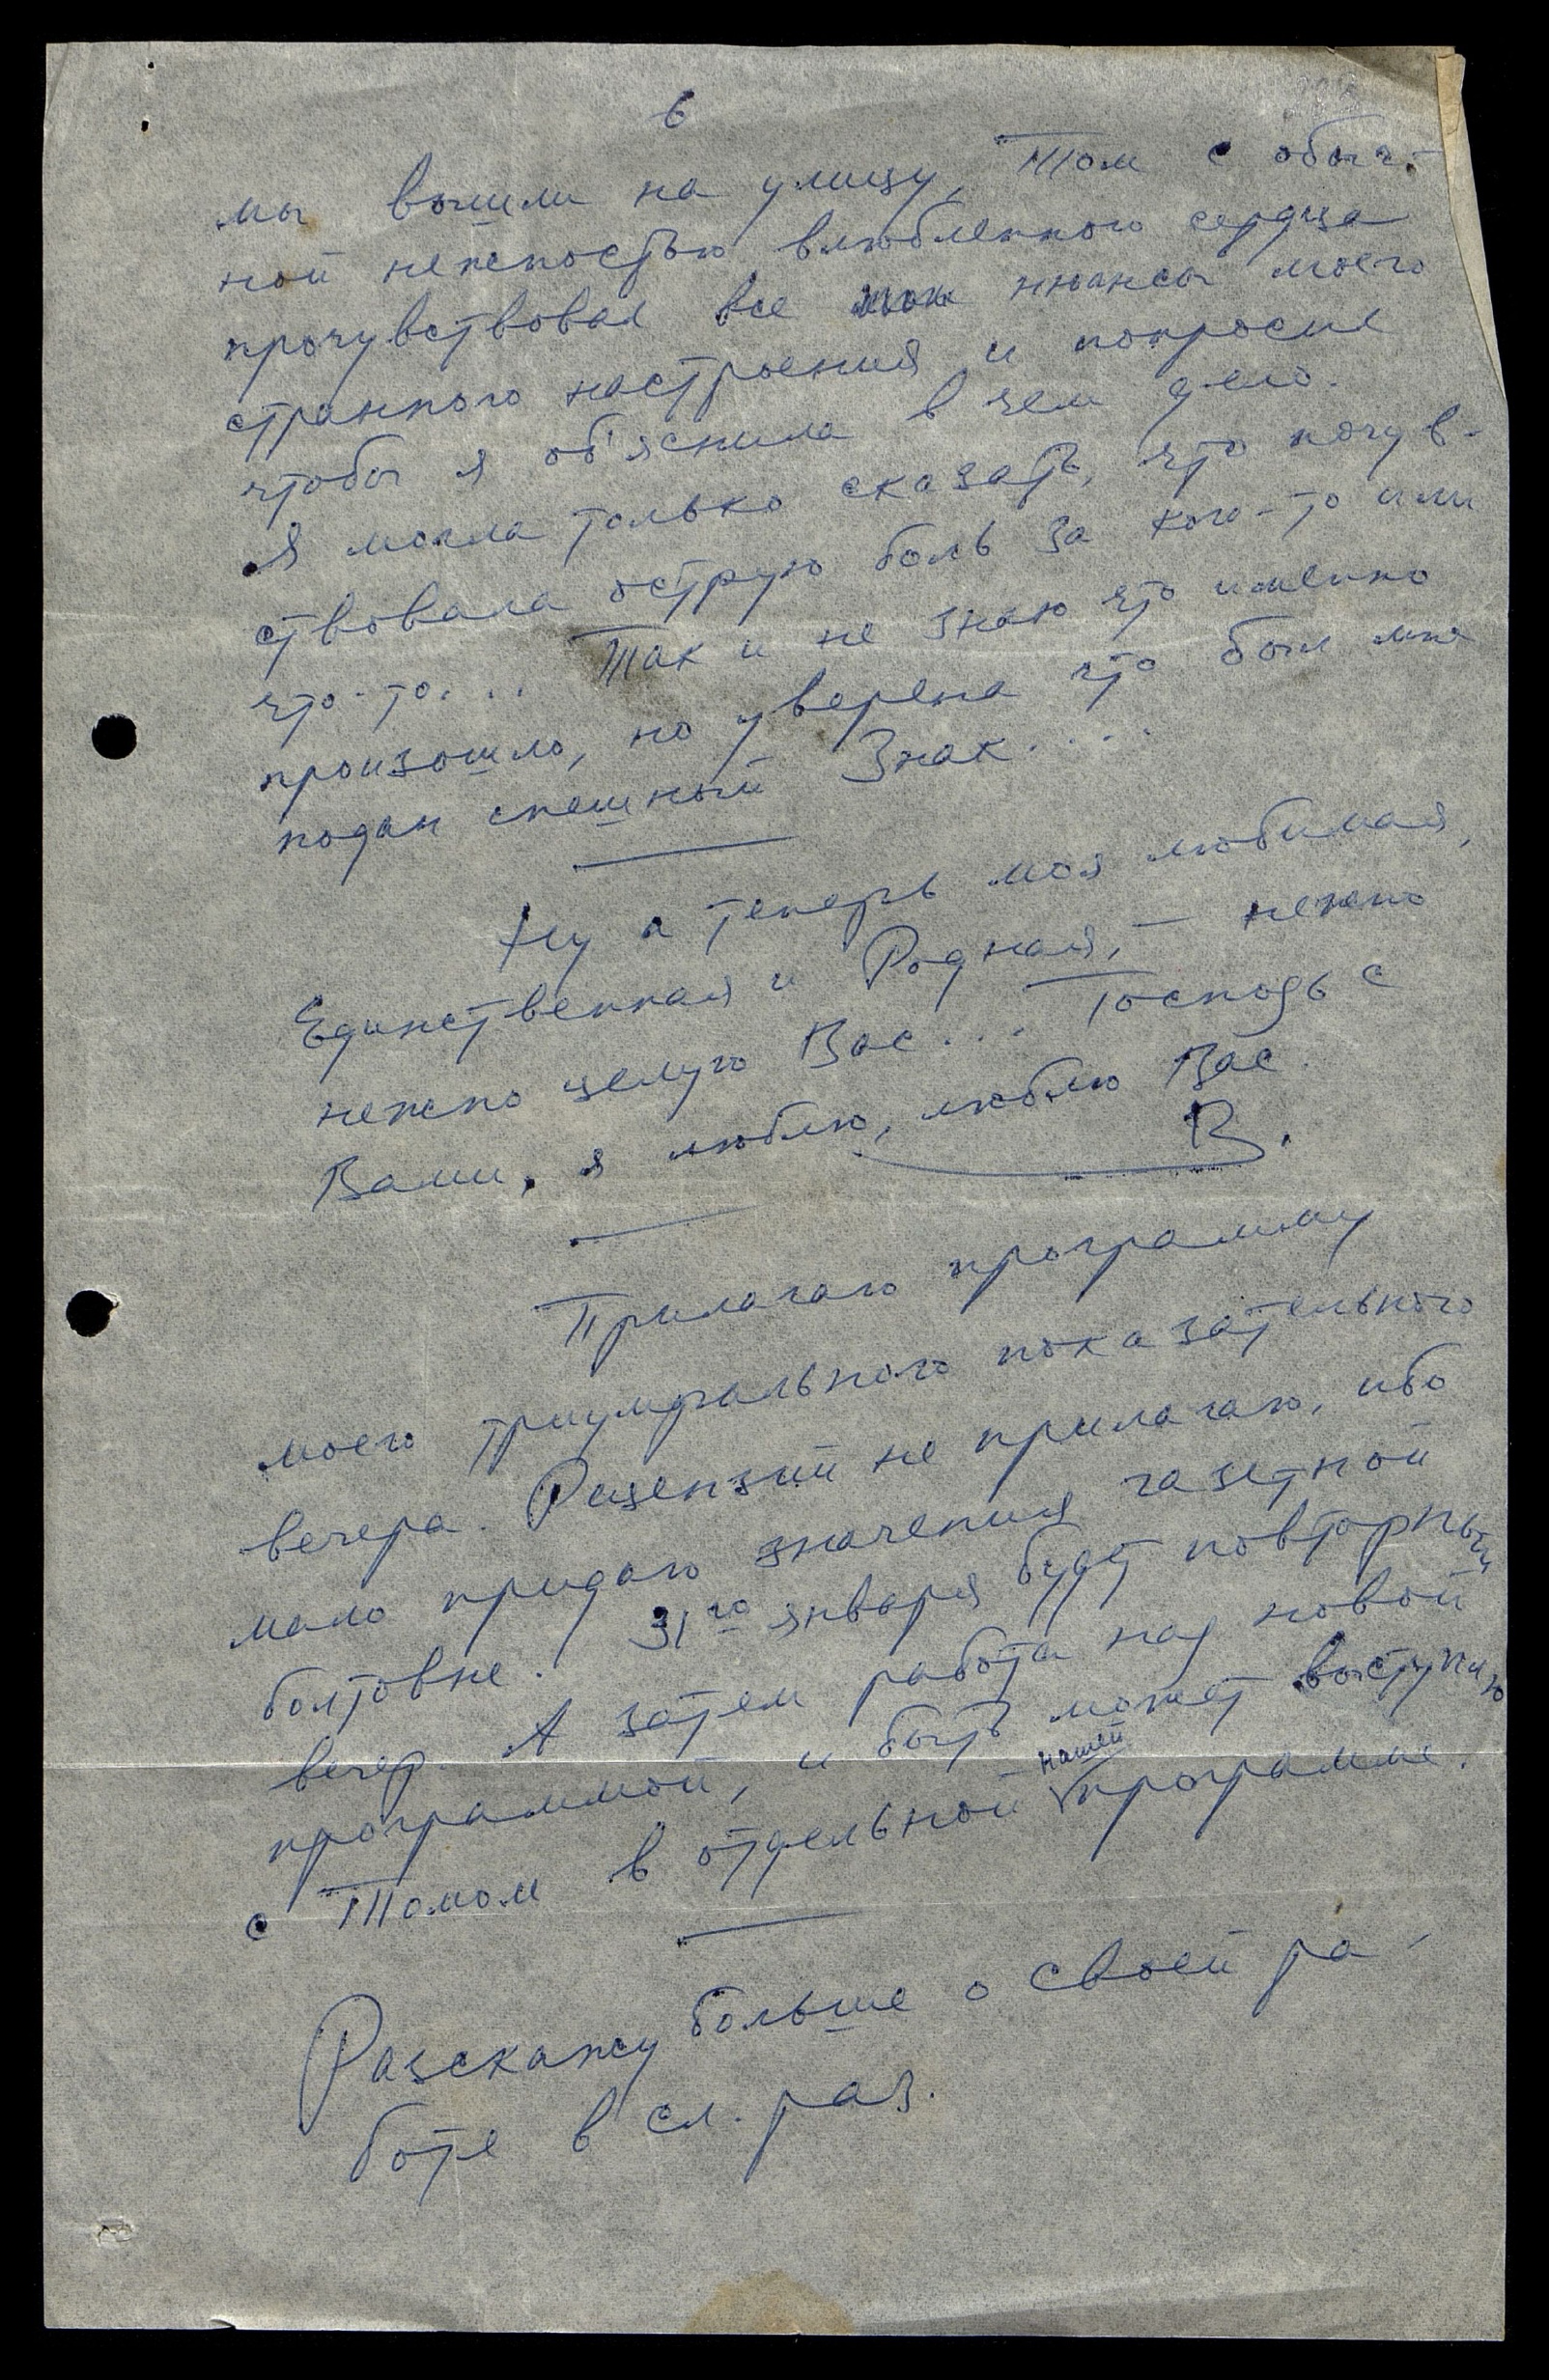 6
мы вышли на улицу, Том с обыч-
ной нежностью влюбленного сердца
прочувствовал все нюансы моего
странного настроения и попросил
чтобы я об'яснила в чем дело.
Я могла только сказать, что почув-
ствовала острую боль за кого-то или
что-то.... Так и не знаю что именно
произошло, но уверена что был мне
подан спешный Знак....
Ну а теперь моя любимая,
Единственная и Родная, – нежно
нежно целую Вас... Господь с
Вами, я люблю, люблю Вас.
В.
Прилагаю программу
моего триумфального показательного
вечера. Рецензий не прилагаю, ибо
мало придаю значения газетной
болтовне. 31го января будет повторный
вечер. А затем работа над новой
программой, и быть может выступлю
с Томом в отдельной нашей программе.
Разскажу больше о своей ра-
боте в сл. раз.